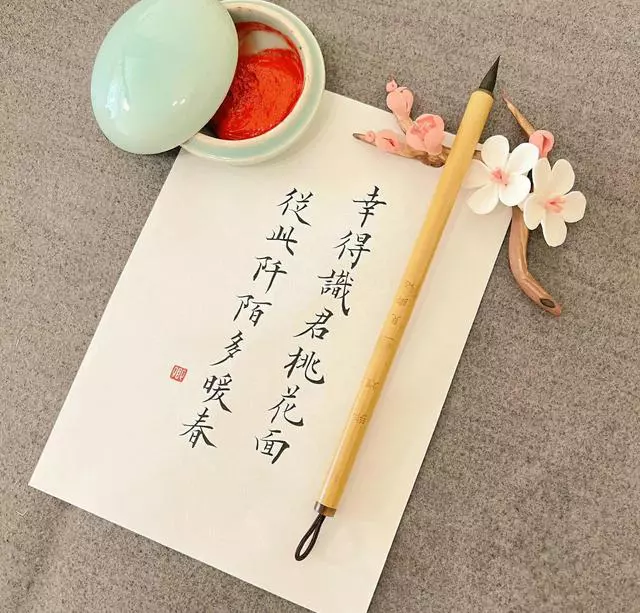 幸得識君桃花面
從此阡陌多暖春